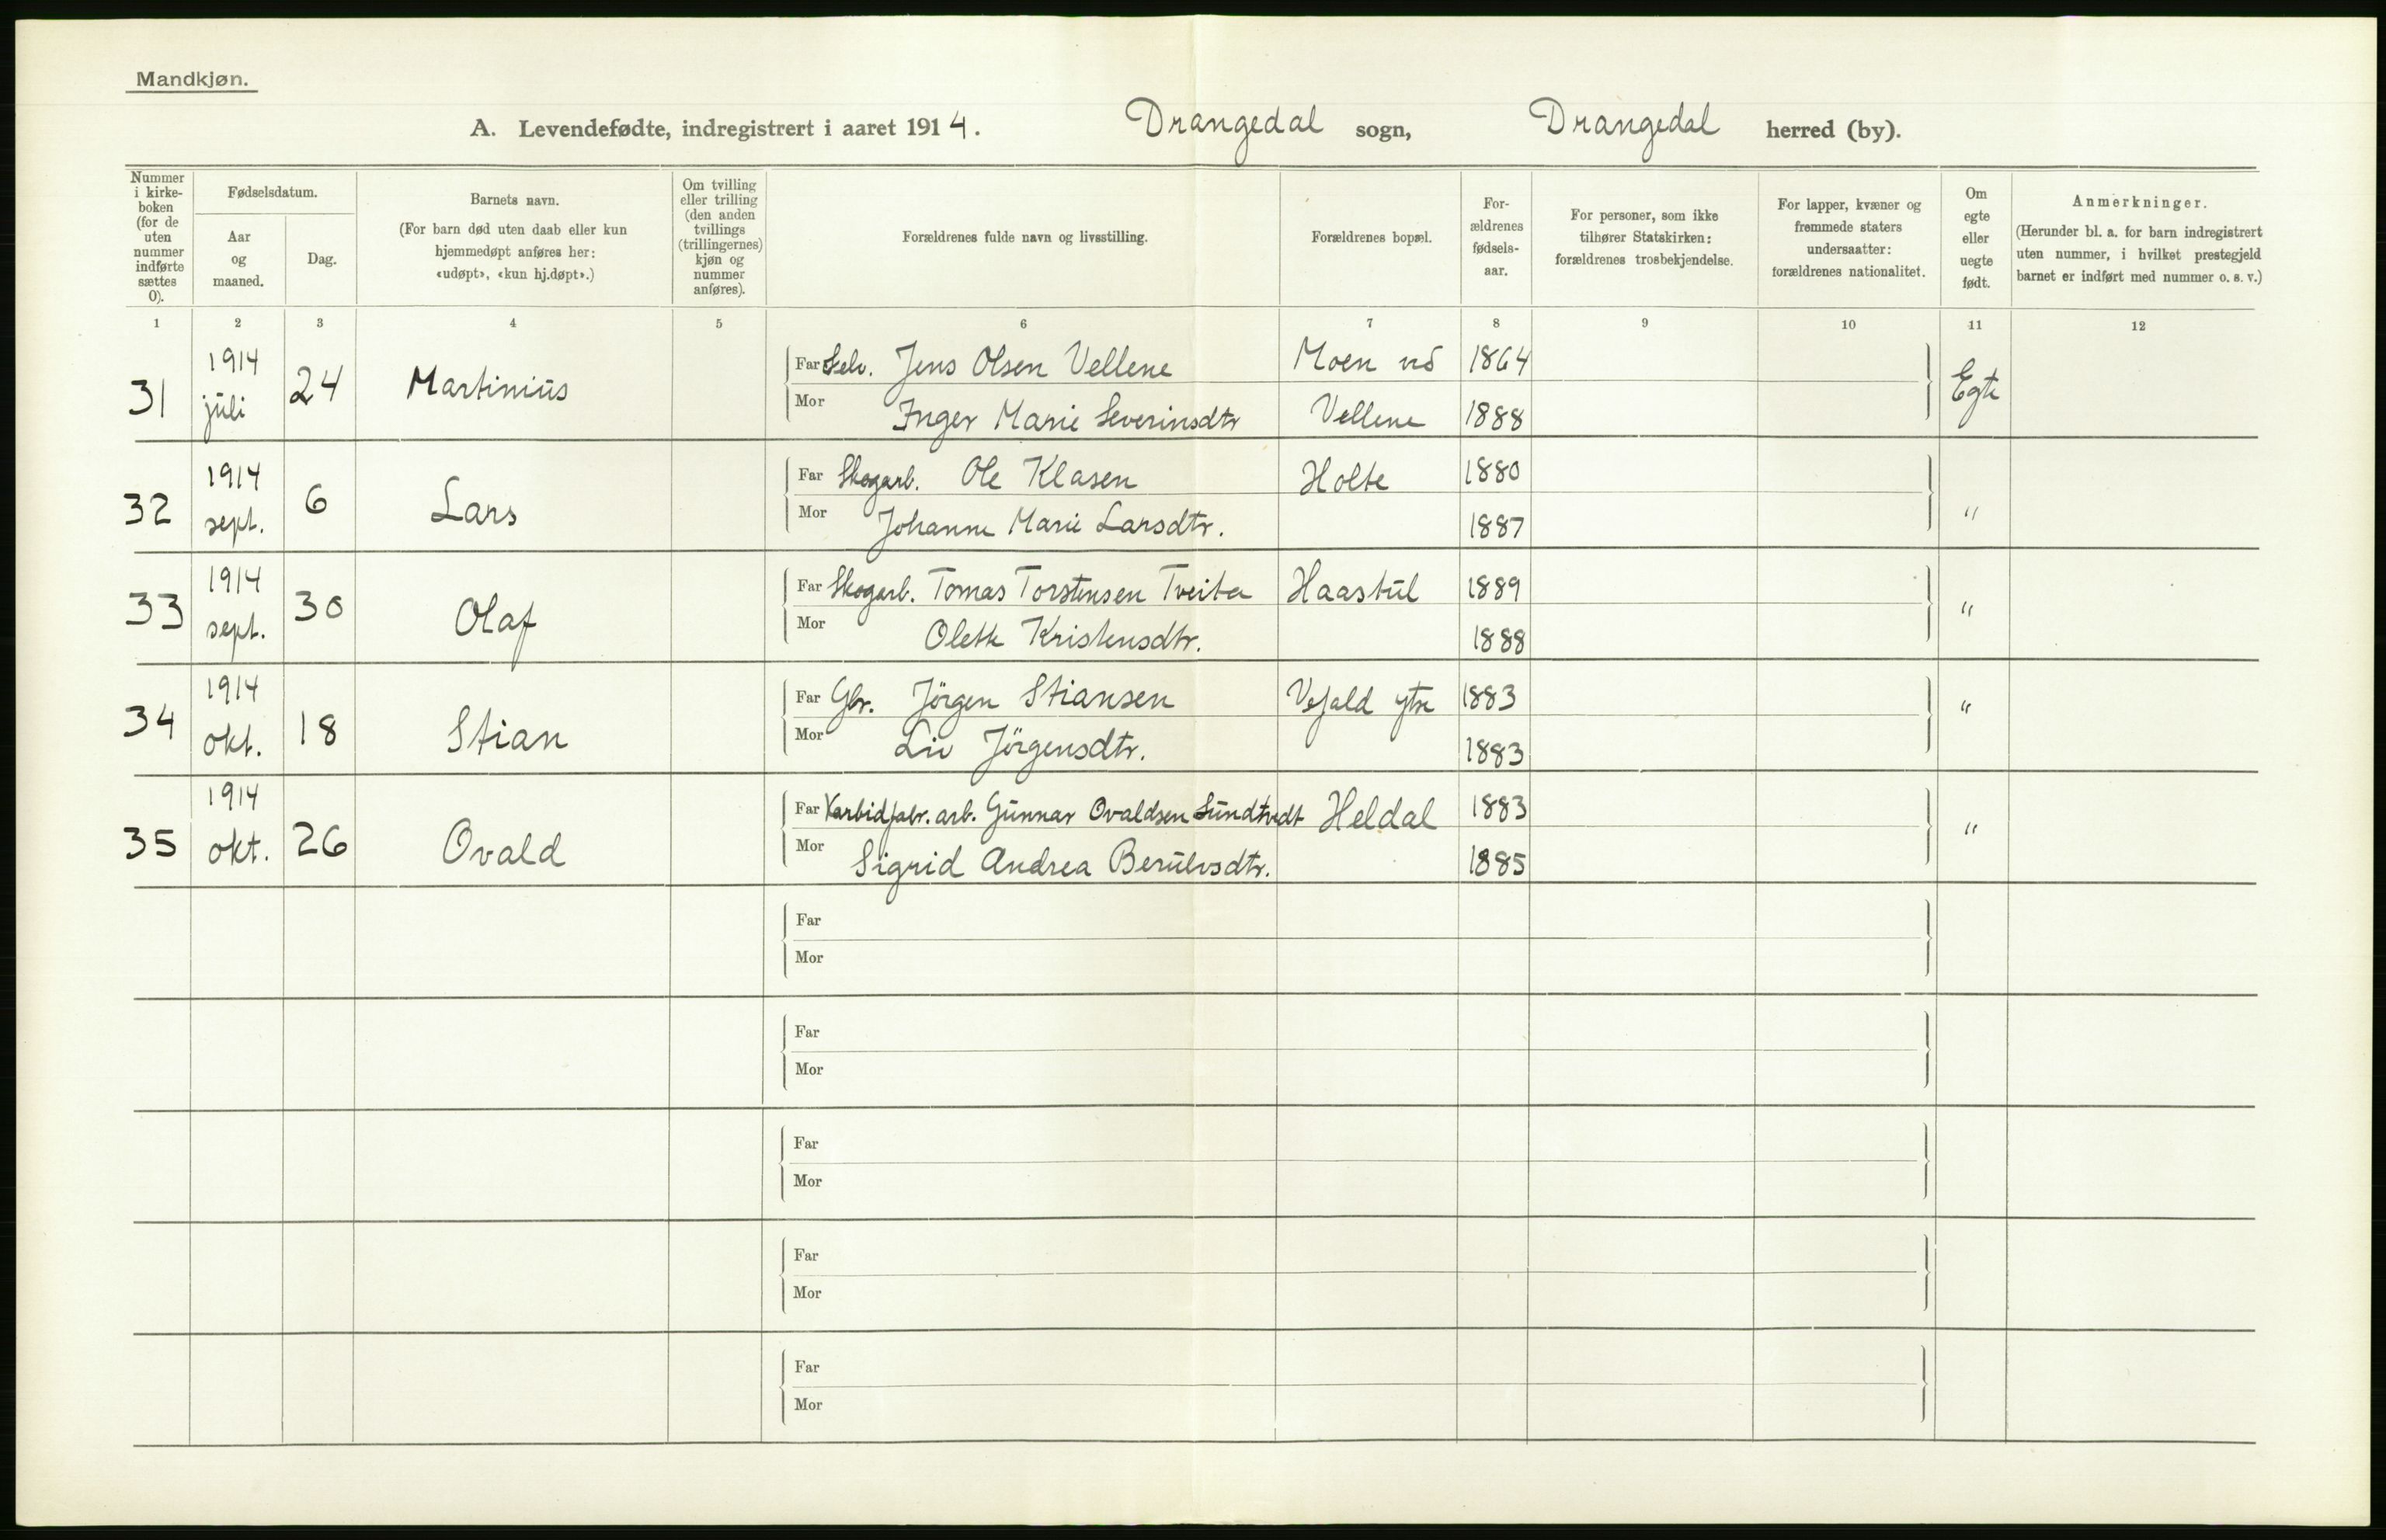 Mandkjøn.
A. Levendefødte, indregistrert i aaret 1914. Drangedal sogn, Drangedal herred (by).
Nummer i kirke-boken (for de uten nummer indførte sættes 0).
Fødselsdatum.
Aar og maaned.
Dag.
Barnets navn.
(For barn død uten daab eller kun hjemmedøpt anføres her: «udøpt», «kun hj.døpt».)
Om tvilling eller trilling (den anden tvillings (trillingernes) kjøn og nummer anføres).
Forældrenes fulde navn og livsstilling.
Forældrenes bopæl.
For-ældrenes fødsels-aar.
For personer, som ikke tilhører Statskirken: forældrenes trosbekjendelse.
For lapper, kvæner og fremmede staters undersaatter: forældrenes nationalitet.
Om egte eller uegte født.
Anmerkninger.
(Herunder bl. a. for barn indregistrert uten nummer, i hvilket prestegjeld barnet er indført med nummer o. s. v.)
1 2 3 4 5 6 7 8 9 10 11 12
31 1914 juli 24 Martinius Far Selv. Jens Olsen Vellene Moen v/ 1864 Egte
Mor Inger Marie Severinsdtr Vellene 1888
32 1914 sept. 6 Lars Far Skogarb. Ole Klasen Holte 1880 "
Mor Johanne Marie Larsdtr. 1887
33 1914 sept. 30 Olaf Far Skogarb. Tomas Torstensen Tveita Haastul 1889 "
Mor Olette Kristensdtr. 1888
34 1914 okt. 18 Stian Far Gbr. Jörgen Stiansen Vefald ytre 1883 "
Mor Liv Jörgensdtr. 1883
35 1914 okt. 26 Ovald Far Karbidfabr. arb. Gunnar Ovaldsen Sundtvedt Heldal 1883 "
Mor Sigrid Andrea Berulvsdtr. 1885
Far
Mor
Far
Mor
Far
Mor
Far
Mor
Far
Mor